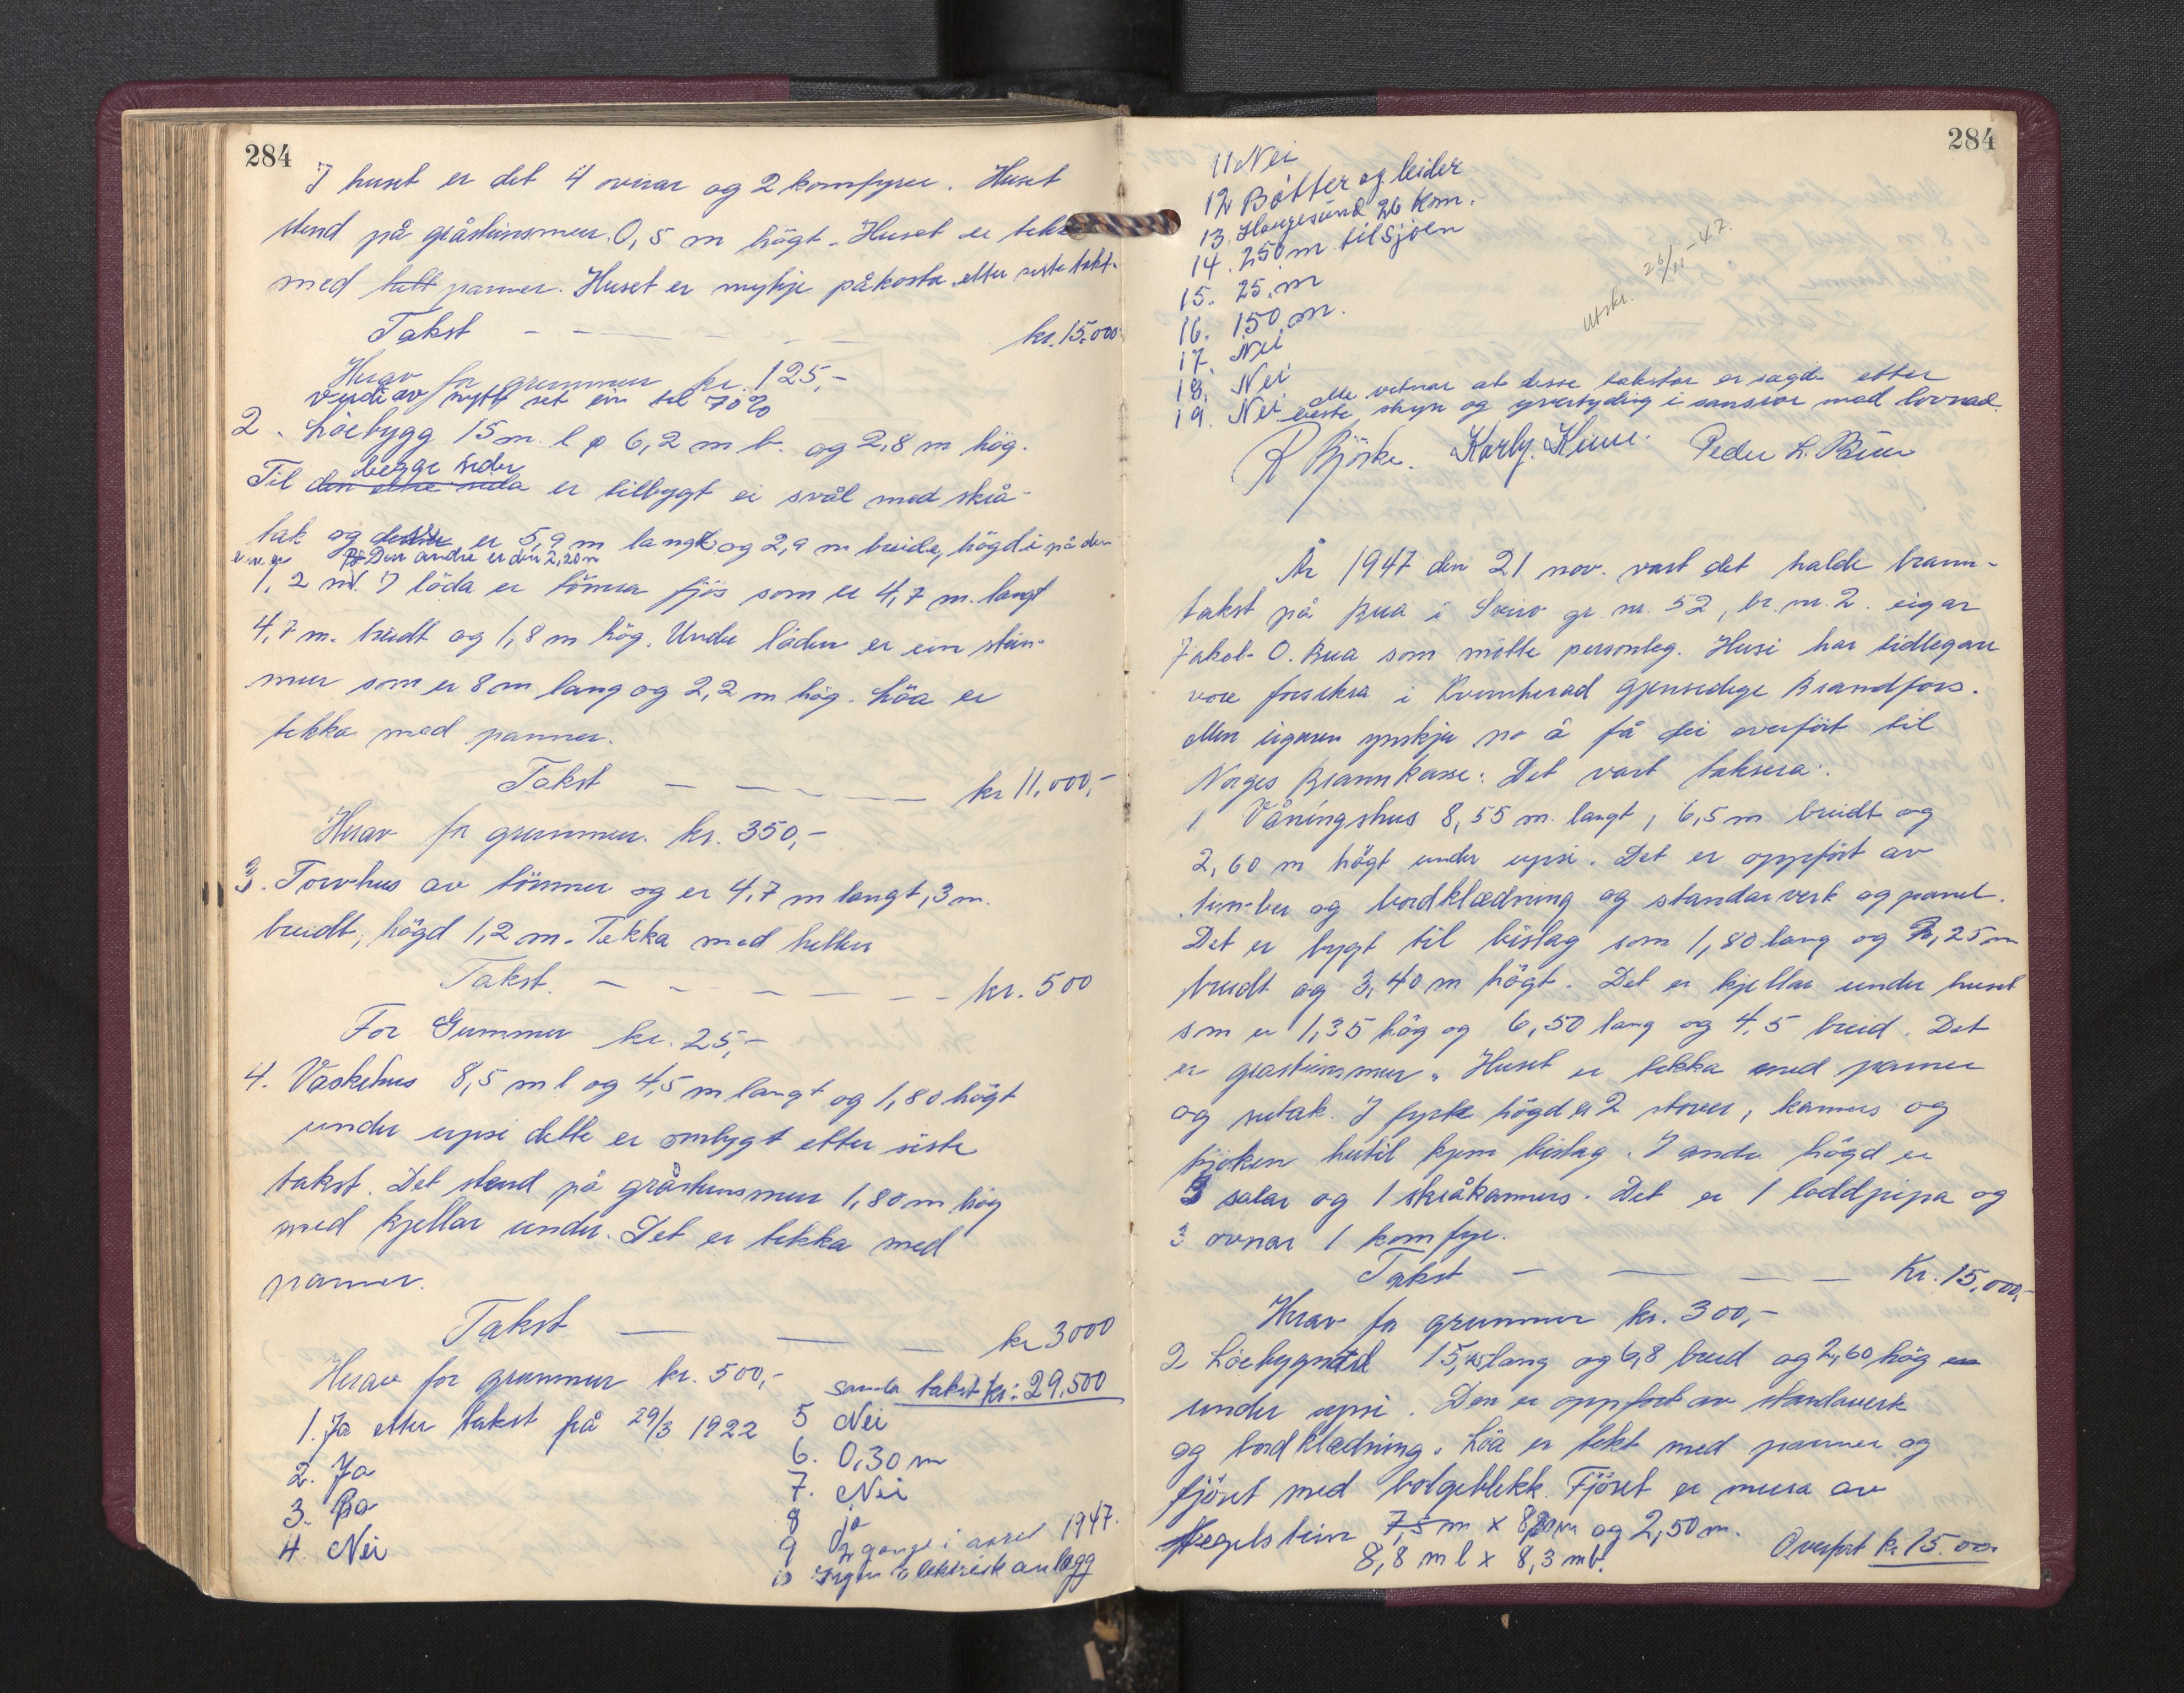 284
I huset er det 4 ovnar og 2 komfyrer. Huset
stend på gråsteinsmur 0,5 m högt. Huset er tekt
med panner. Huset er mykje påkosta etter siste takst.
Takst — — — — — kr. 15.000
Herav for grunnmur kr. 125,-
Verdi av nytt set ein til 70%
2. Löebygg 15 m. l. 6,2 m b. og 2,8 m hög.
begge sider
Til den eine sida er tilbygt ei svål med skrå-
tak og er 5,9 m lang og 2,9 m breide, högdi på den
eine er Den andre er den 2,20 m
1,2 m. I löda er tömra fjös som er 4,7 m. langt
4,7 m. breidt og 1,8 m hög. Under löden er ein stein-
mur som er 8 m lang og 2,2 m hög. Löa er
tekka med panner.
Takst — — — — — kr 11.000,-
Herav for grunnmur. kr. 350,-
3. Torvhus av tömmer og er 4,7 m langt, 3 m.
breidt, högd 1,2 m. Tekka med heller
Takst. — — — — — — kr. 500
For Grunnmur kr. 25,-
4. Vaskehus 8,5 m l og 4,5 m langt og 1,80 högt
under upsi dette er ombygt etter siste
takst. Det stend på gråsteinsmur 1,80 m hög
med kjellar under. Det er tekka med
panner.
Takst — — — kr 3000
Herav for grunnmur kr. 500,- samla takst kr: 29.500
1. Ja etter takst frå 29/3 1922
2. Ja
3. Ja
4. Nei
5 Nei
6. 0,30 m
7. Nei
8 ja
9 2 gange i året 1947.
10 Ingen elektrisk anlegg
284
11 Nei
12 Bötter og leider
13. Haugesund 26 km.
14. 250 m til sjöen
15. 25 m
16. 150 m.
17. Nei
18. Nei
19. Nei
Utskr. 26/11-47.
Me vitnar at desse takstar er sagde etter
beste skyn og yvertyding i samsvar med lovnad.
R Bjørke. Karly. Peder L.
År 1947 den 21 nov. vart det halde brann-
takst på Bua i gr. nr. 52, br. nr. 2. eigar
Jakob O. Bua som mötte personleg. Husi har tidlegare
vore forsikra i Kvinnherad Gjensidige Brandfors.
Men eigaren ynskjer no å få dei overfört til
Norges Brannkasse: Det vart taksera:
1 Våningshus 8,55 m. langt, 6,5 m breidt og
2,60 m högt under upsi. Det er oppfört av
timber og bordklædning og standarverk og panel.
Det er bygt til bislag som 1,80 lang og 2,25 m
breidt og 3,40 m högt. Det er kjellar under huset
som er 1,35 hög og 6,50 lang og 4,5 breid. Det
er gråsteinsmur. Huset er tekka med panner
og sutak. I fyrste högd er 2 stover, kamers og
kjöken hertil kjem bislag. I andre högd er
3 salar og 1 skråkamers. Det er 1 loddpipa og
3 ovnar 1 komfyr.
Takst — — — — Kr. 15.000,-
Herav for grunnmur kr. 300,-
2 Löebygnad 15, lang og 6,8 breid og 2,60 hög
under upsi. Den er oppfört av standaverk
og bordklædning. Löa er tekt med panner og
fjöset med bølgeblekk. Fjöset er mura av
tegelstein 7,5 m x og 2,50 m.
8,8 m l x 8,3 m b.
Overfört kr 15.000